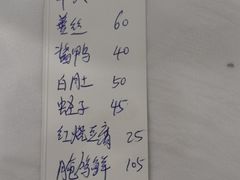 姜丝 60
酱鸭 40
白肚 50
蛏子 45
红烧豆腐 25
腌鸡鲜 105